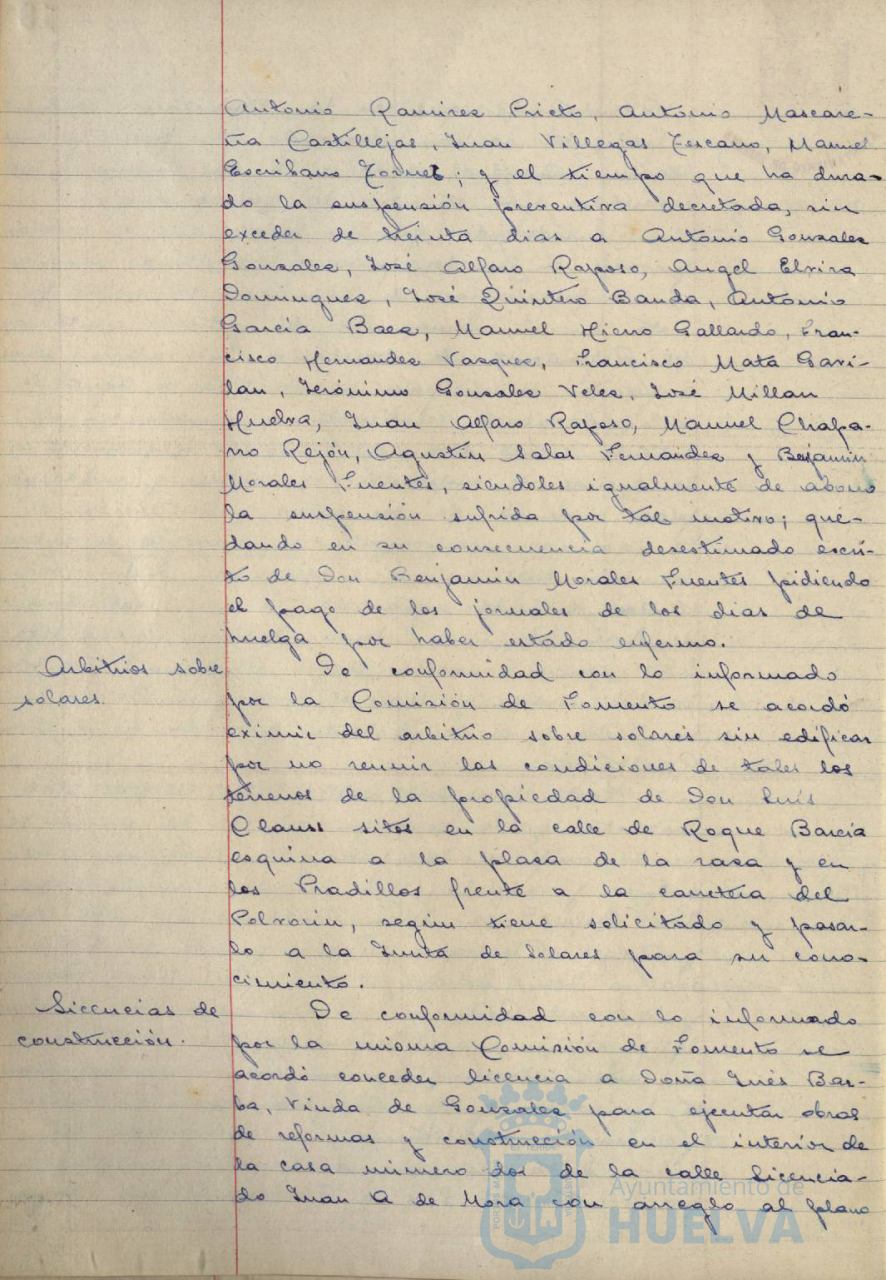 Antonio Ramirez Prieto, Antonio Mascare-
ña Castillejas, Juan Villegas Lescano, Manuel
Escribano Tornet; y el tiempo que ha dura-
do la suspensión preventiva decretada, sin
exceder de treinta dias a Antonio Gonzalez
Gonzalez, José Alfaro Raposo, Angel Elvira
Dominguez, José Quintero Banda, Antonio
García Baez, Manuel Hierro Gallardo, Fran-
cisco Hernandez Vazquez, Francisco Mata Gavi-
lan, Jerónimo Gonzalez Velez, José Millan
Huelva, Juan Alfaro Raposo, Manuel Chapa-
rro Rejón, Agustin Salas Fernandez y Benjamin
Morales Fuentes, siendoles igualmente de abono
la suspensión sufrida por tal motivo; que-
dando en su consecuencia desestimado escri-
to de Don Benjamin Morales Fuentes pidiendo
el pago de los jornales de los dias de
huelga por haber estado enfermo.
Arbitrios sobre
solares.
De conformidad con lo informado
por la Comisión de Fomento se acordó
eximir del arbitrio sobre solares sin edificar
por no reunir las condiciones de tales los
terrenos de la propiedad de Don Luis
Clauss sitos en la calle de Roque Barcia
esquina a la plaza de la raza y en
los Pradillos frente a la carretera del
Polvorin, según tiene solicitado y pasar-
lo a la Junta de Solares para su cono-
cimiento.
Licencias de
construcción.
De conformidad con lo informado
por la misma Comisión de Fomento se
acordó conceder licencia a Doña Inés Bar-
ba, Viuda de Gonzalez para ejecutar obras
de reformas y construcción en el interior de
la casa número dos de la calle Licencia-
do Juan A de Mora con arreglo al plano
Ayuntamiento de
HUELVA